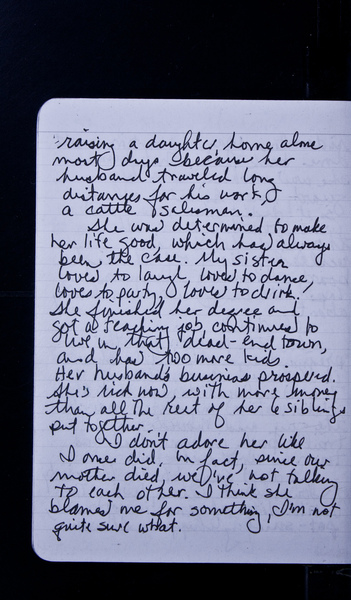 raising a daughter, home alone
most days because her
husband traveled long
distances for his work,
a cattle salesman.
She was determined to make
her life good, which has always
been the case. My sister
loves to laugh, loves to dance,
loves to party, loves to drink.
She finished her degree and
got a teaching job, continued to
live in that dead-end town,
and had two more kids.
Her husband's business prospered.
She's rich now, with more money
than all the rest of her 6 siblings
put together.
I don't adore her like
I once did. In fact, since our
mother died, we've not talking
to each other. I think she
blames me for something, I'm not
quite sure what.